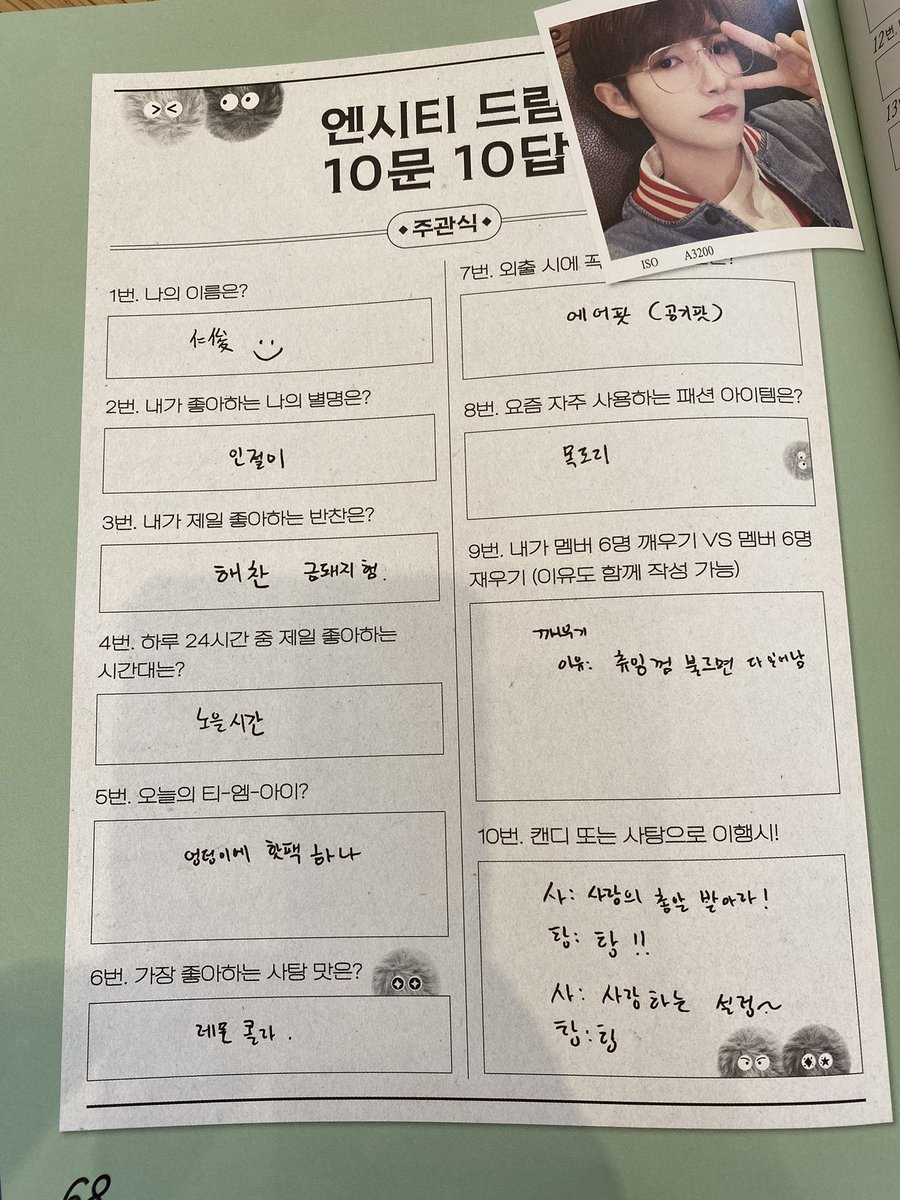 엔시티 드림
10문 10답
주관식
1번. 나의 이름은?
仁俊
2번. 내가 좋아하는 나의 별명은?
인절미
3번. 내가 제일 좋아하는 반찬은?
해찬 금돼지형.
4번. 하루 24시간 중 제일 좋아하는
시간대는?
노을시간
5번. 오늘의 티-엠-아이?
엉덩이에 핫팩 하나
6번. 가장 좋아하는 사탕 맛은?
레몬 콜라.
7번. 외출 시에 꼭
에어팟 (공기팟)
8번. 요즘 자주 사용하는 패션 아이템은?
목도리
9번. 내가 멤버 6명 깨우기 VS 멤버 6명
재우기 (이유도 함께 작성 가능)
깨우기
이유: 츄잉껌 부르면 다 일어남
10번. 캔디 또는 사탕으로 이행시!
사: 사랑의 총알 받아라!
탕: 탕!!
사: 사랑하는 설정~
탕: 탕
ISO A3200
12번.
13
68